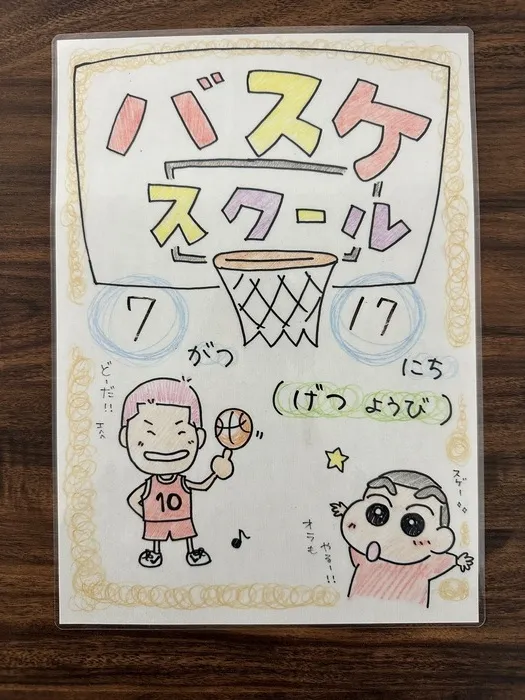 バスケ
スクール
7がつ 17にち
(げつようび)
どーだ!!
エヘ
10
スゲー
オラも
やるー!!